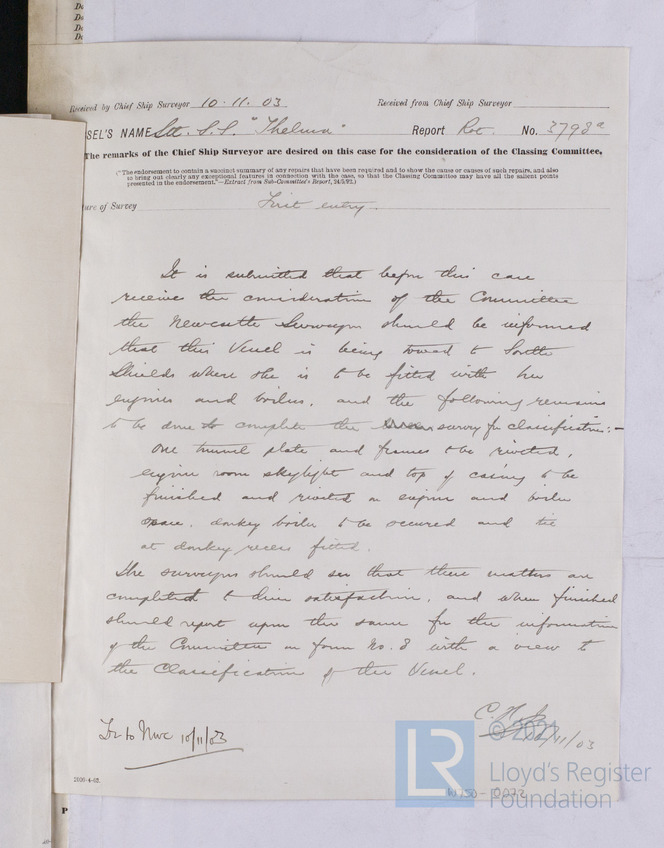 Received by Chief Ship Surveyor 10.11.03 Received from Chief Ship Surveyor
SEL'S NAME Stl. S.S. "Thelma" Report Rot. No. 3798a
The remarks of the Chief Ship Surveyor are desired on this case for the consideration of the Classing Committee,
("The endorsement to contain a succinct summary of any repairs that have been required and to show the cause or causes of such repairs, and also
to bring out clearly any exceptional features in connection with the case, so that the Classing Committee may have all the salient points
presented in the endorsement."—Extract from Sub-Committee's Report,
ure of Survey First entry
It is submitted that before this case
receives the consideration of the Committee
the Newcastle Surveyors should be informed
that this Vessel is being towed to South
Shields where she is to be fitted with her
engines and boilers, and the following remains
to be done to complete the survey for classification:-
One tunnel plate and frames to be riveted,
engine room skylight and top of casing to be
finished and riveted on engine and boiler
space, donkey boiler to be secured and tie
at donkey recess fitted.
The surveyors should see that these matters are
completed to their satisfaction, and when finished
should report upon the same for the information
of the Committee on form No. 8 with a view to
the Classification of the Vessel.
Tr to Nwc 10/11/03
/11/03
2000-4-02.
© 2021
LR
Lloyd's Register
Foundation
W758-0072
P